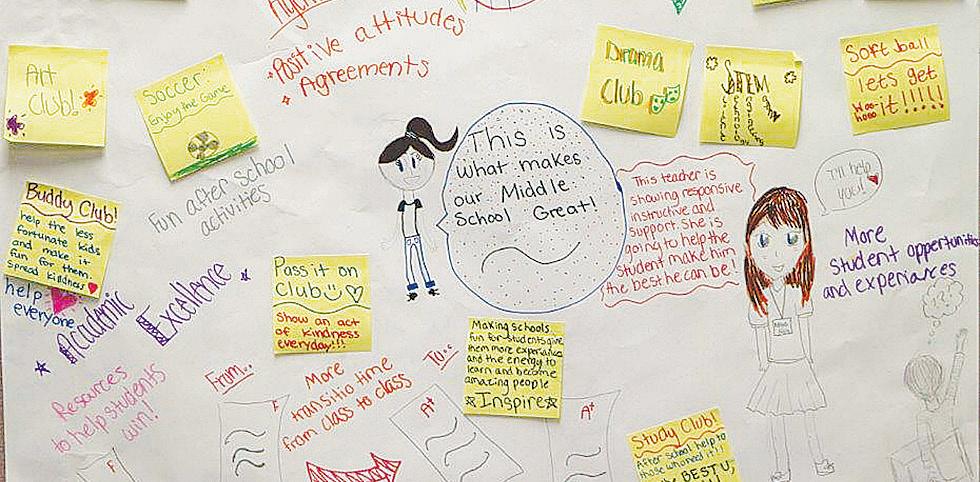 Positive attitudes
Agreements
Art
Club!
Soccer:
Enjoy the Game
Fun after school
activities
This is
what makes
our Middle
School Great!
Drama
Club
STEM
Softball
lets get
it!!!!!
Woo-
hooo
This teacher is
showing responsive
instructive and
support. She is
going to help the
student make him
the best he can be!
I'll help
you!
More
student opportunities
and experiances
Buddy Club!
help the less
fortunate kids
and make it
fun for them.
Spread kindness
help
everyone
Academic
Excellence
Pass it on
Club
Show an act
of kindness
everyday!!!
Making schools
fun for students give
them more experiance
and the energy to
learn and become
amazing people
Inspire
Resources
to help students
win!
From..
F
More
transitio time
from class to class
To:.
A+
A+
F
Study Club!
After school help to
those who need it!!
the BEST U,